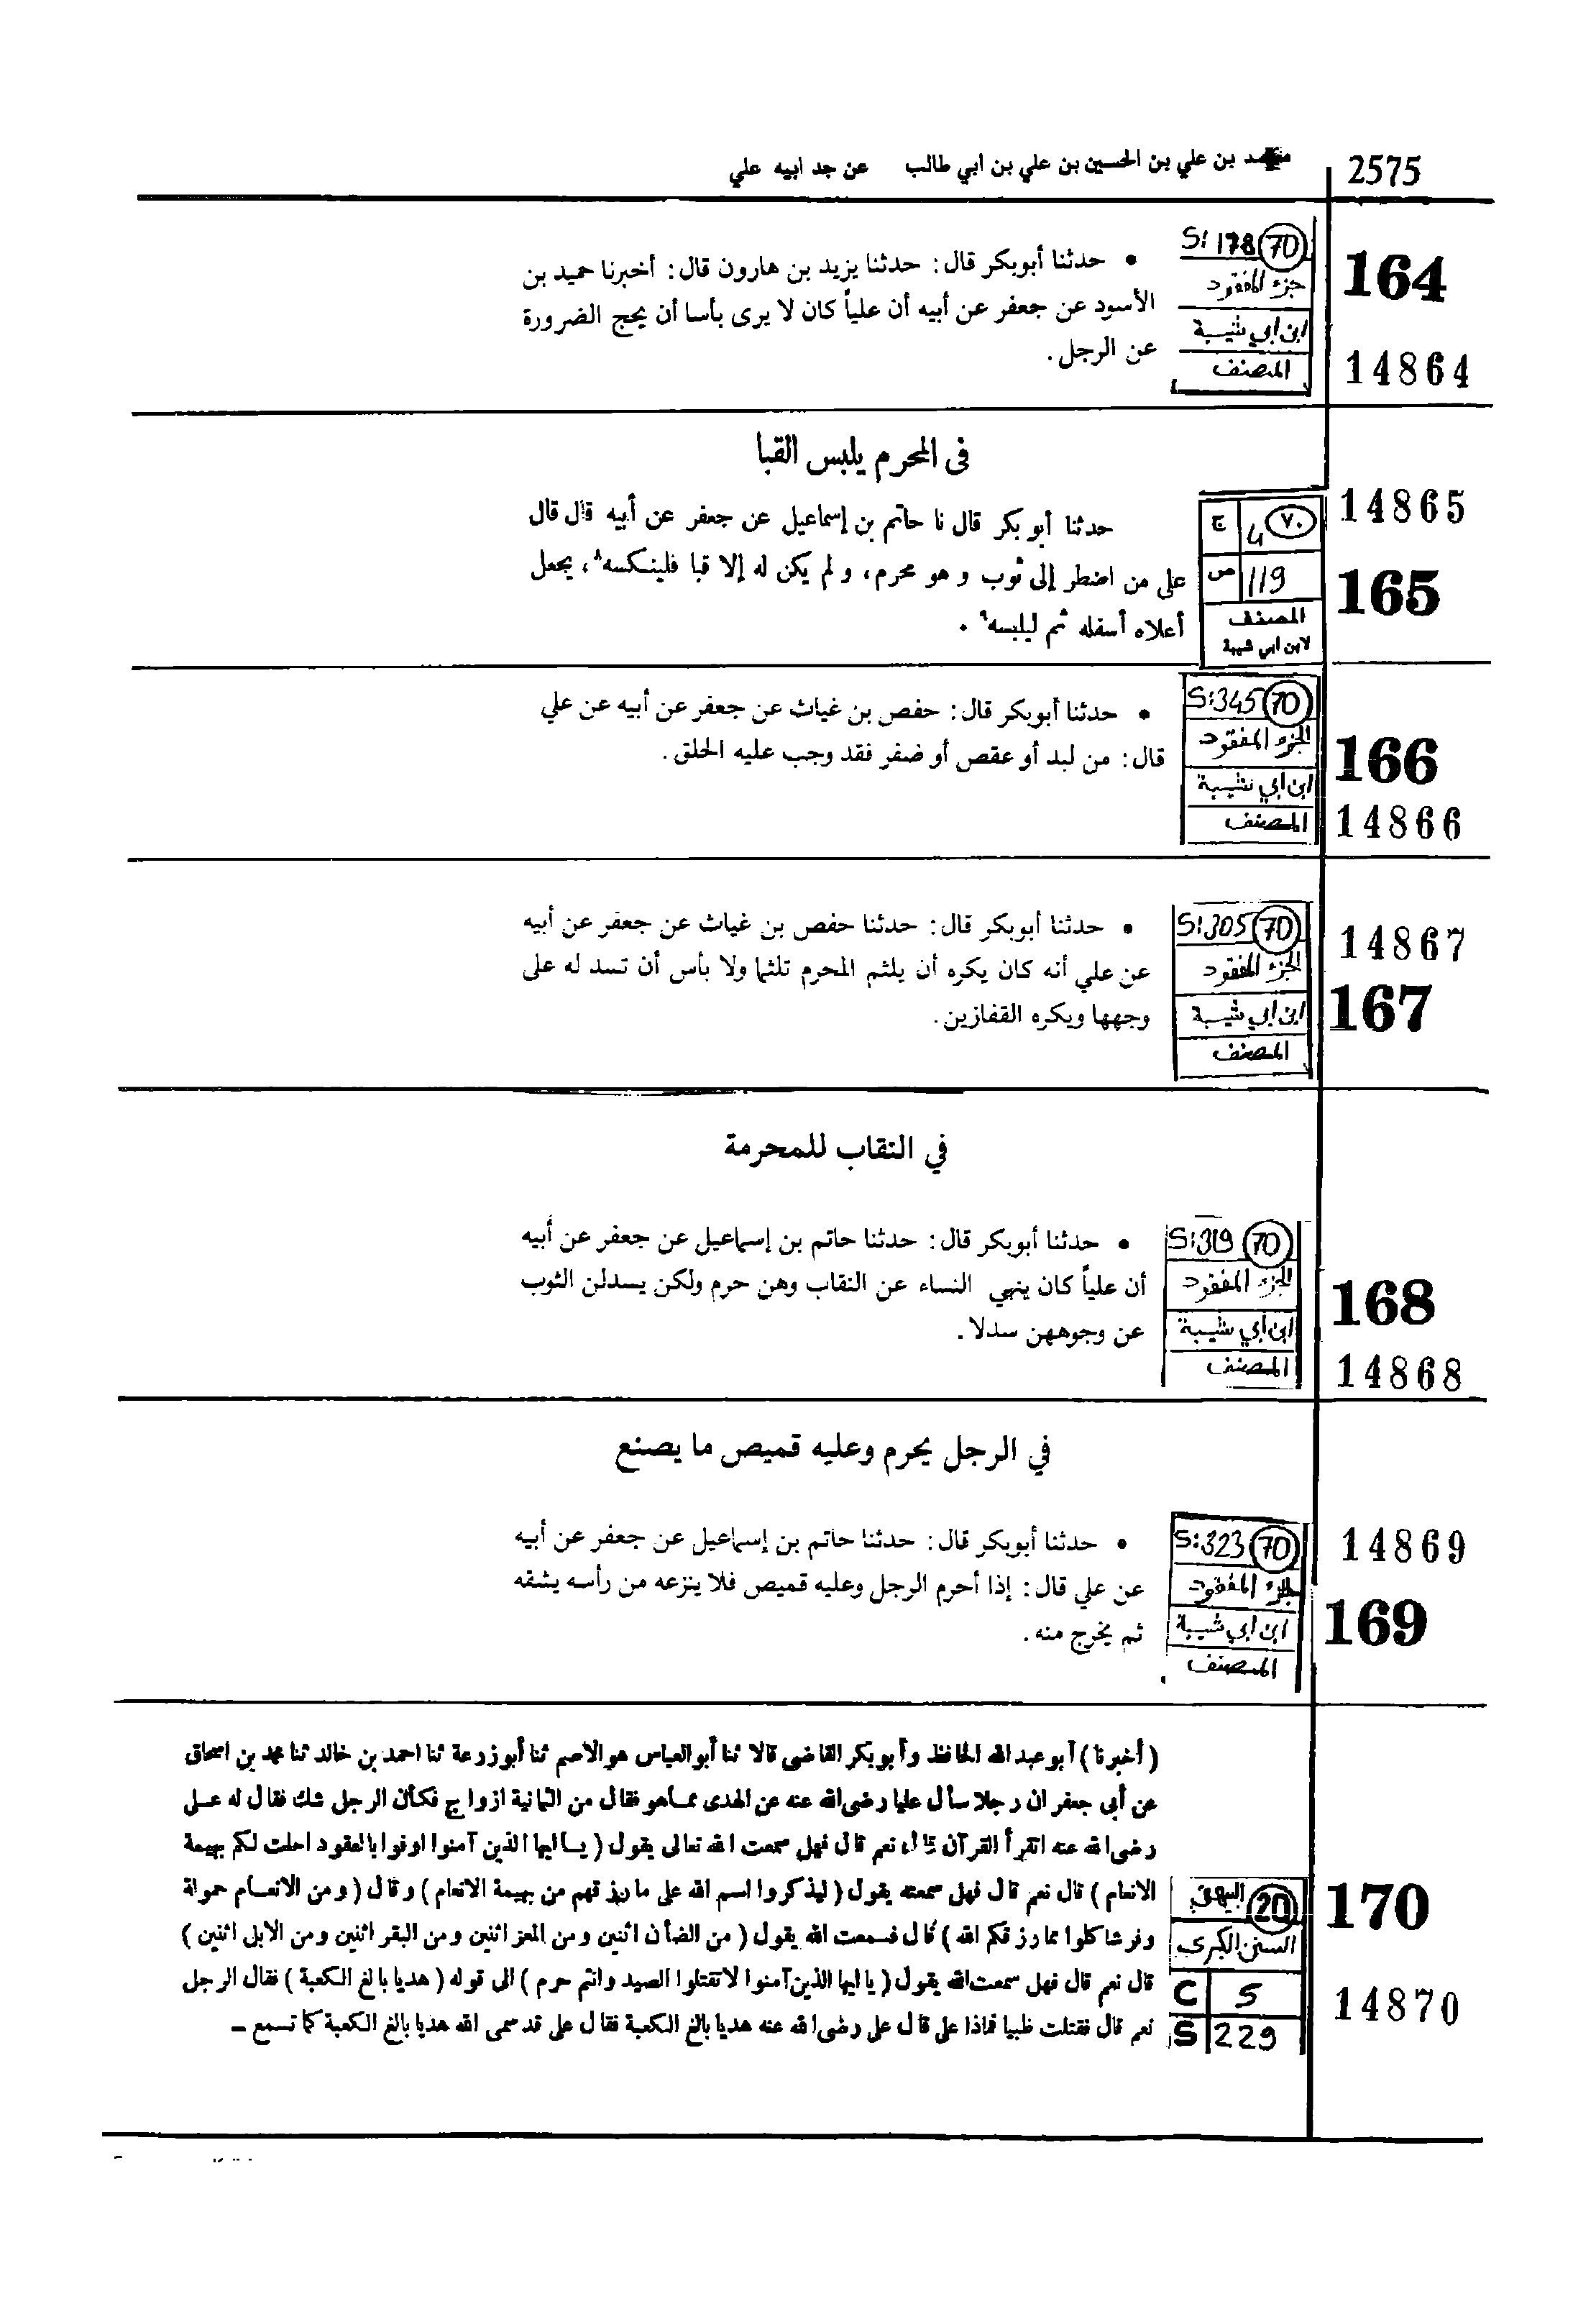 2575
محمد بن علي بن الحسين بن علي بن ابي طالب عن جد ابيه علي
164
14864
S: 178 70
جزء المفقود
ابن ابي شيبة
المصنف
• حدثنا أبوبكر قال: حدثنا يزيد بن هارون قال: أخبرنا حميد بن
الأسود عن جعفر عن أبيه أن علياً كان لا يرى بأسا أن يحج الضرورة
عن الرجل.
في المحرم يلبس القبا
14865
165
٧٠ 4 ج
119 ص
المصنف
لابن ابي شيبة
حدثنا أبو بكر قال نا حاتم بن إسماعيل عن جعفر عن أبيه قال قال
على من اضطر إلى ثوب و هو محرم، و لم يكن له إلا قبا فلينكسه٨، يجعل
أعلاه أسفله ثم ليلبسه٩ .
166
14866
S:345 70
الجزء المفقود
ابن ابي شيبة
المصنف
• حدثنا أبوبكر قال: حفص بن غياث عن جعفر عن أبيه عن علي
قال: من لبد أو عقص أو ضفر فقد وجب عليه الحلق.
14867
167
S:305 70
الجزء المفقود
ابن ابي شيبة
المصنف
• حدثنا أبوبكر قال: حدثنا حفص بن غياث عن جعفر عن أبيه
عن علي أنه كان يكره أن يلثم المحرم تلثما ولا بأس أن تسد له على
وجهها ويكره القفازين.
في النقاب للمحرمة
168
14868
S:319 70
الجزء المفقود
ابن ابي شيبة
المصنف
• حدثنا أبوبكر قال: حدثنا حاتم بن إسماعيل عن جعفر عن أبيه
أن علياً كان ينهي النساء عن النقاب وهن حرم ولكن يسدلن الثوب
عن وجوههن سدلا.
في الرجل يحرم وعليه قميص ما يصنع
14869
169
S:323 70
المفقود
ابن ابي شيبة
المصنف
• حدثنا أبوبكر قال: حدثنا حاتم بن إسماعيل عن جعفر عن أبيه
عن علي قال: إذا أحرم الرجل وعليه قميص فلا ينزعه من رأسه يشقه
ثم يخرج منه.
170
14870
البيهقي 20
السنن الكبرى
C 5
S 229
( أخبرنا ) أبو عبد الله الحافظ وأبوبكر القاضى قالا ثنا أبو العباس هو الاصم ثنا أبو زرعة ثنا احمد بن خالد ثنا محمد بن اسحاق
عن أبى جعفر ان رجلا سأل عليا رضى الله عنه عن الهدى مما هو فقال من الثمانية ازواج فكأن الرجل شك فقال له على
رضى الله عنه اتقرأ القرآن قال نعم قال فهل سمعت الله تعالى يقول ( يا ايها الذين آمنوا اوفوا بالعقود احلت لكم بهيمة
الانعام ) قال نعم قال فهل سمعته يقول ( ليذكروا اسم الله على ما رزقهم من بهيمة الانعام ) وقال ( ومن الانعام حمولة
وفرشا كلوا مما رزقكم الله ) قال فسمعت الله يقول ( من الضأن اثنين ومن المعز اثنين ومن البقر اثنين ومن الابل اثنين )
قال نعم قال فهل سمعت الله يقول ( يا ايها الذين آمنوا لا تقتلوا الصيد وانتم حرم ) الى قوله ( هديا بالغ الكعبة ) فقال الرجل
نعم قال فقتلت ظبيا فماذا على قال على رضى الله عنه هديا بالغ الكعبة فقال على قد سمى الله هديا بالغ الكعبة كما تسمع –